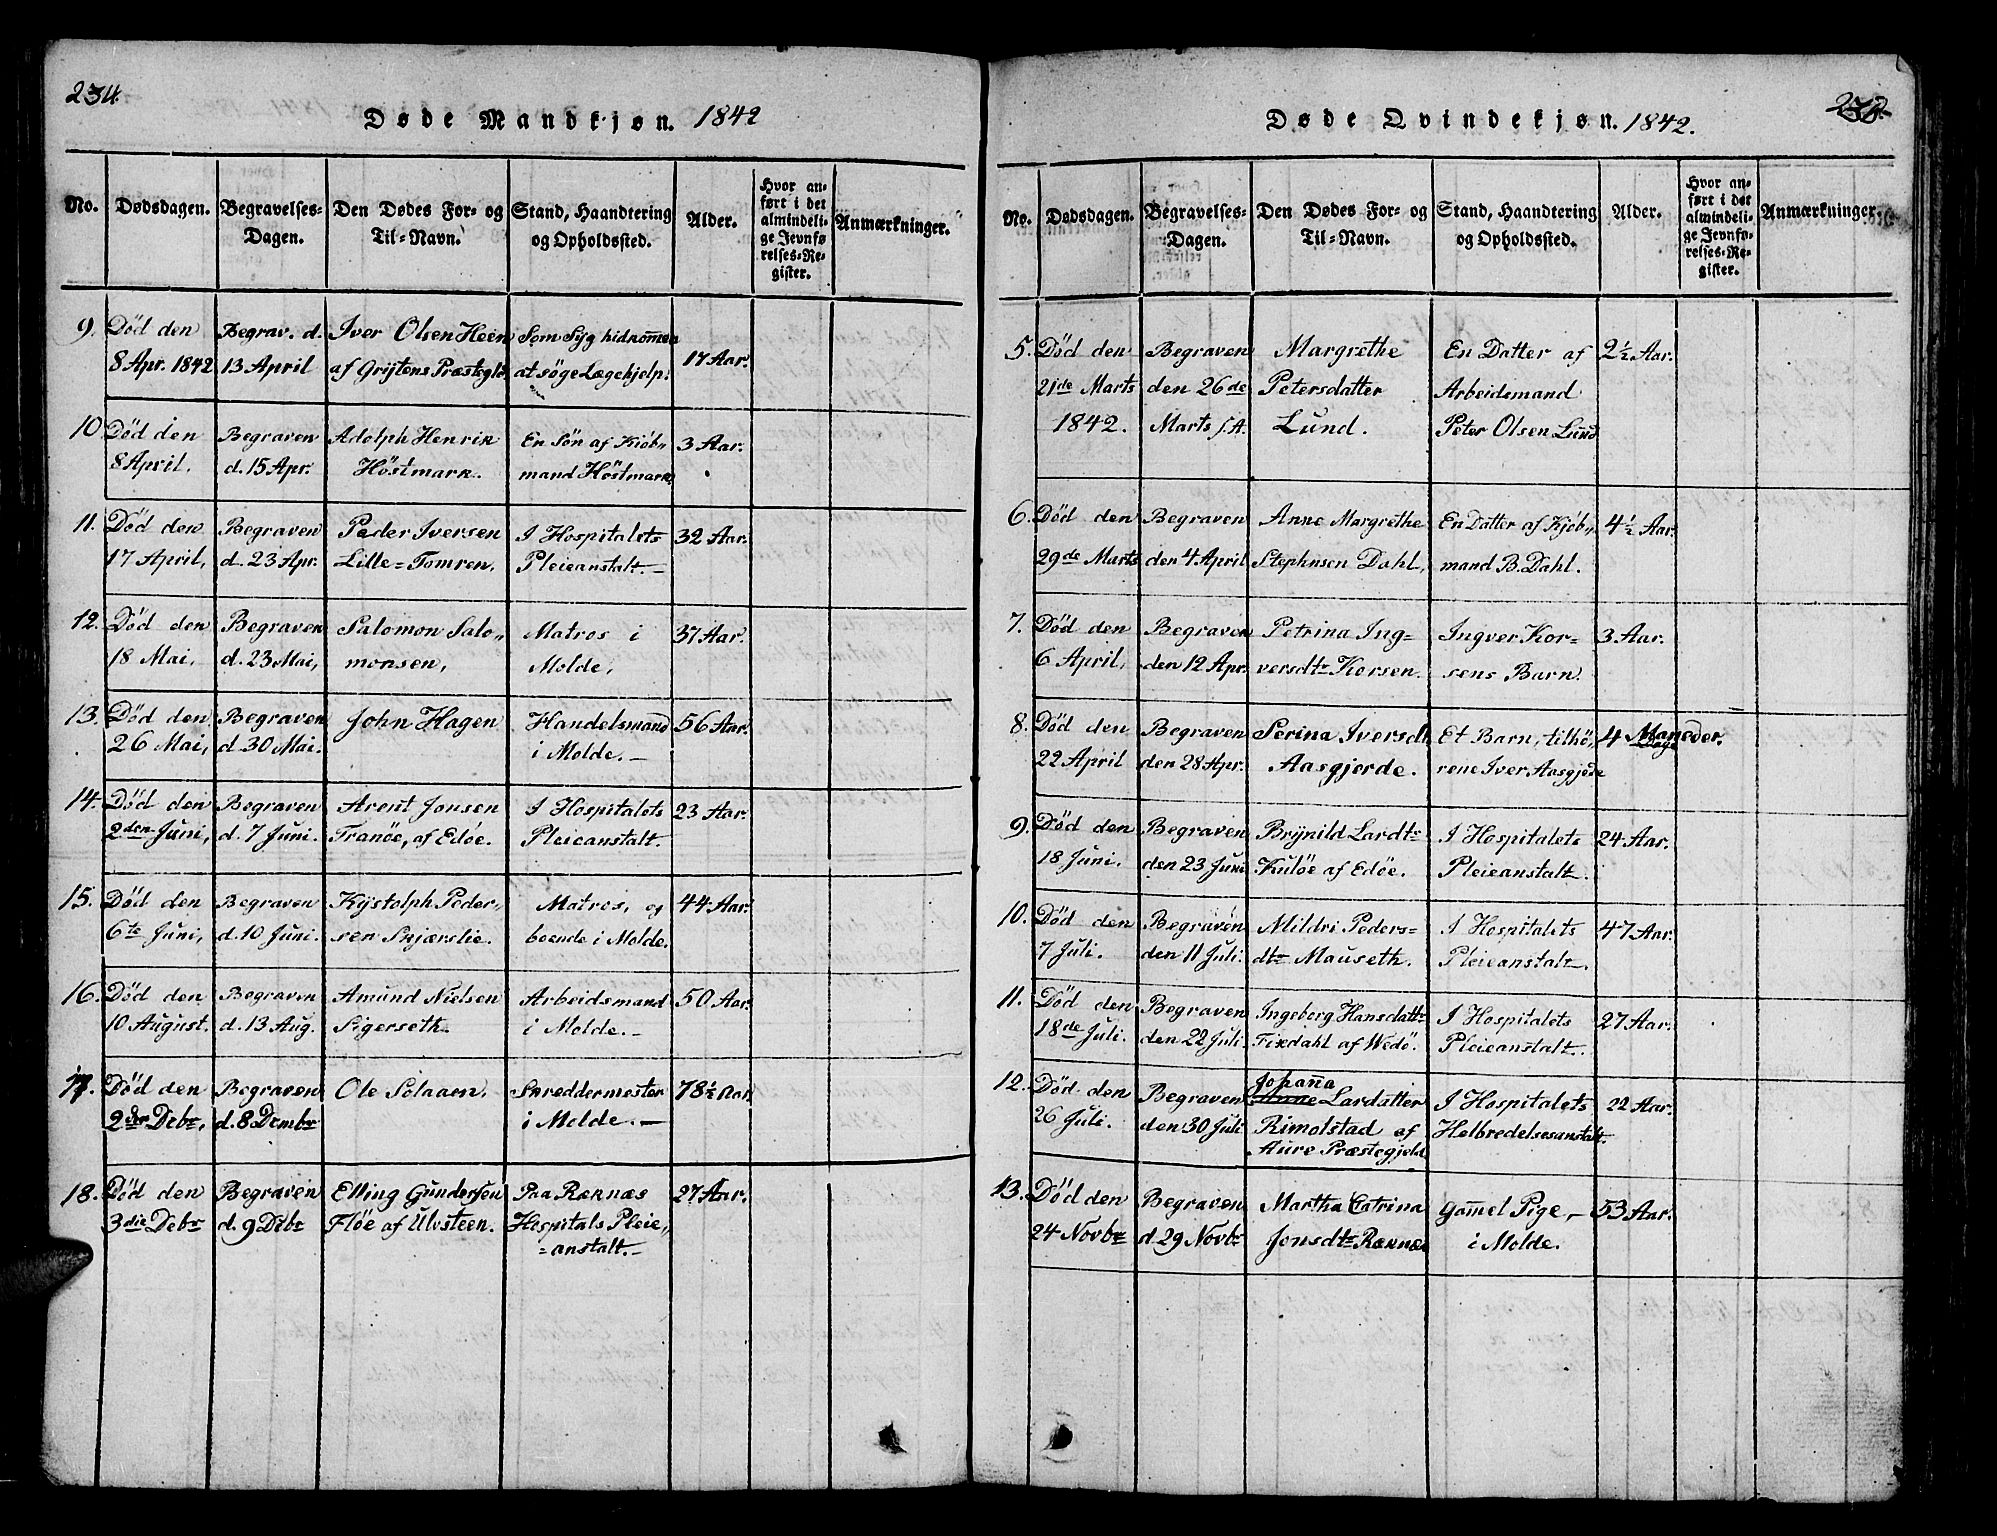 234.
Døde Mandkjøn. 1842
No. Dødsdagen. Begravelses-Dagen. Den Dødes For- og Til-Navn. Stand, Haandtering og Opholdssted. Alder. Hvor anført i det almindelige Jevnførelses-Register. Anmærkninger.
9. Død den Begrav. d. Iver Olsen Heen Som Syg hidkom̄en 17 Aar.
8 Apr. 1842 13 April af Grytens Præstegld. at söge Lægehjelp.
10 Död den Begraven Adolph Henrik En Sön af Kiöb- 3 Aar.
8 April. d. 15 Apr. Höstmark. mand Höstmark
11. Död den Begraven Peder Iversen I Hospitalets 32 Aar.
17 April, d. 23 Apr. Lille=Tomren. Pleieanstalt.—
12. Död den Begraven Salomon Salo- Matros i 37 Aar.
18 Mai, d. 23 Mai, monsen, Molde,
13. Död den Begraven John Hagen Handelsmand 56 Aar.
26 Mai, d. 30 Mai. i Molde.—
14. Död den Begraven Arent Jonsen I Hospitalets 23 Aar.
2den Juni, d. 7 Juni. Tranöe, af Edöe. Pleieanstalt.
15. Död den Begraven Kystolph Peder- Matros, og 44 Aar.
6te Juni, d. 10 Juni. sen Skjærslie. boende i Molde.
16. Död den Begraven Amund Nielsen Arbeidsmand 50 Aar.
10 August. d. 13 Aug. Sigerseth. i Molde.—
17. Död den Begraven Ole Solaam. Skreddermester 78½ Aar.
2der Debr, d. 8 Dembr i Molde.—
18. Död den Begraven Elling Gundersen Paa Reknæs 27 Aar.
3die Debr d. 9 Debr Flöe af Ulvsteen. Hospitals Pleie-
=anstalt.—
Døde Qvindekjøn. 1842.
No. Dødsdagen. Begravelses-Dagen. Den Dødes For- og Til-Navn. Stand, Haandtering og Opholdssted. Alder. Hvor anført i det almindelige Jevnførelses-Register. Anmærkninger.
5. Död den Begraven Margrethe En Datter af 2½ Aar.
21de Marts den 26de Petersdatter Arbeidsmand
1842. Marts s. A. Lund. Peter Olsen Lund
6. Död den Begraven Anne Margrethe En Datter af Kjöb- 4½ Aar.
29de Marts den 4 April Stephnsen Dahl, mand B. Dahl.
7. Död den Begraven Petrina Ing= Ingver Kor= 3 Aar.
6 April, den 12 Apr. versdtr Korsen. sens Barn.
8. Död den Begraven Serina Iversdt Et Barn, tilhö- 4 Maneder.
22 April den 28 Apr. Aasgjerde. rene Iver Aasgjerde Dage
9. Död den Begraven Brynild Lardtr I Hospitalets 24 Aar.
18 Juni. den 23 Juni Kulöe af Edöe. Pleieanstalt.
10. Död den Begraven Mildri Peders= I Hospitalets 47 Aar.
7 Juli. den 11 Juli. dtr Mauseth. Pleieanstalt.
11. Död den Begraven Ingeborg Hansdattr I Hospitalets 27 Aar.
18de Juli. den 22 Juli. Fixdahl af Wedö. Pleieanstalt.
12. Död den Begraven Johan̄a Anne Lardatter I Hospitalets 22 Aar.
26 Juli. den 30 Juli Rimolstad af Helbredelsesanstalt.
Aure Præstegjeld
13. Död den Begraven Martha Catrina Gam̄el Pige,— 53 Aar.
24 Novbr d. 29 Novbr Jonsdtr Reknæs i Molde.